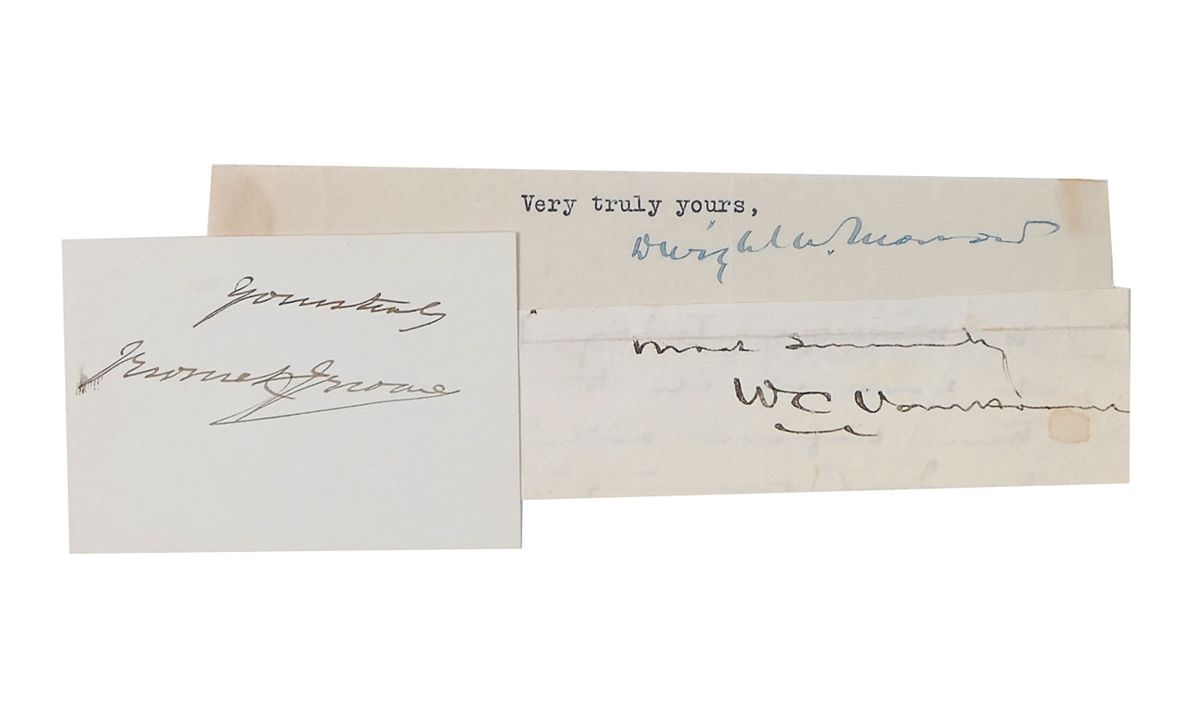 Very truly yours,
Dwight W. Morrow
Yours truly
Jerome K Jerome
Most Sincerely
WC Van Horne